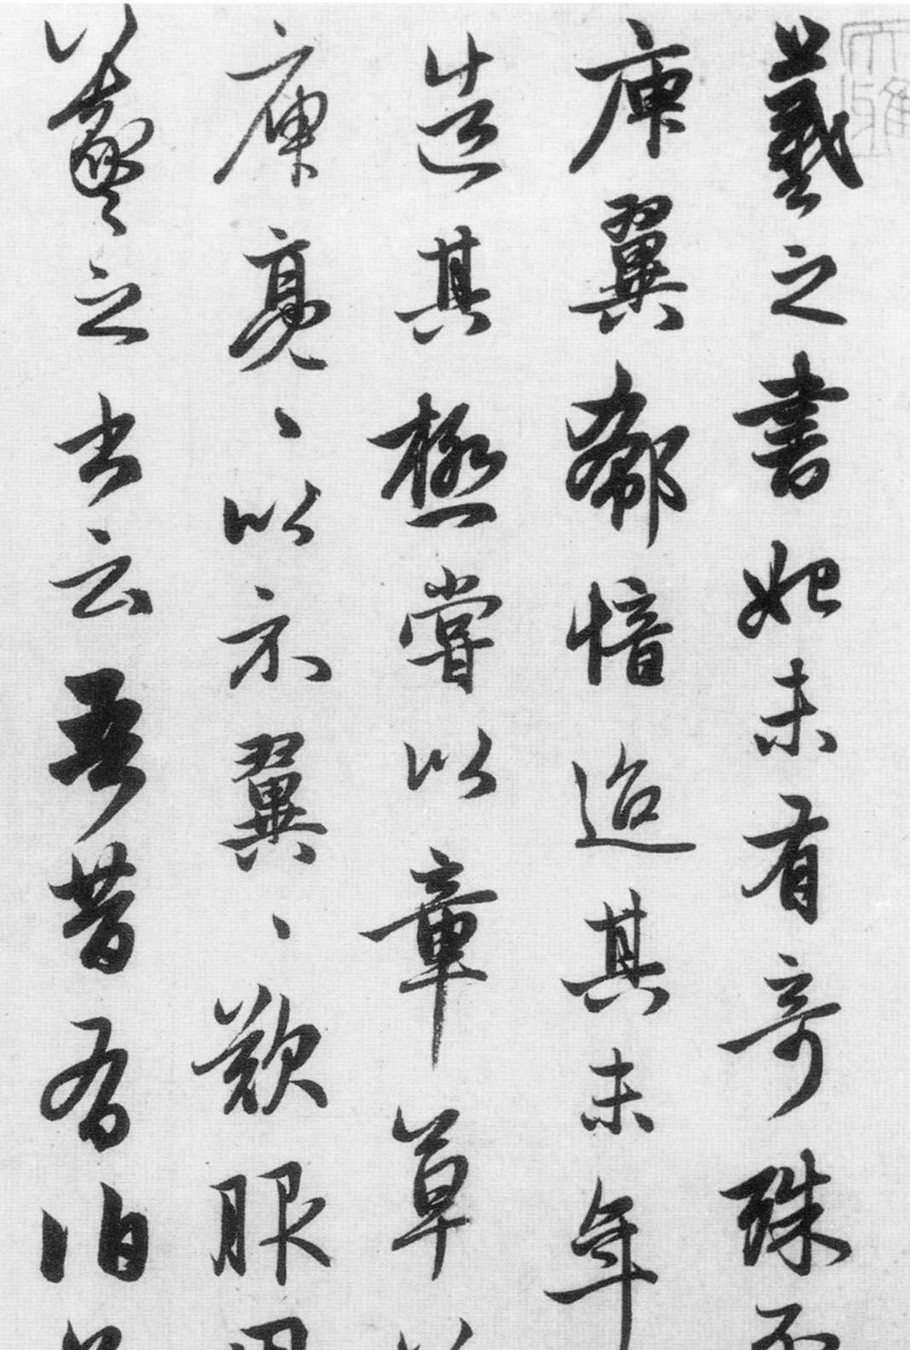 羲之書始未有奇殊不
庾翼郗愔迨其末年
造其極嘗以章草
庾亮、以示翼、歎服因
羲之書云吾昔有伯